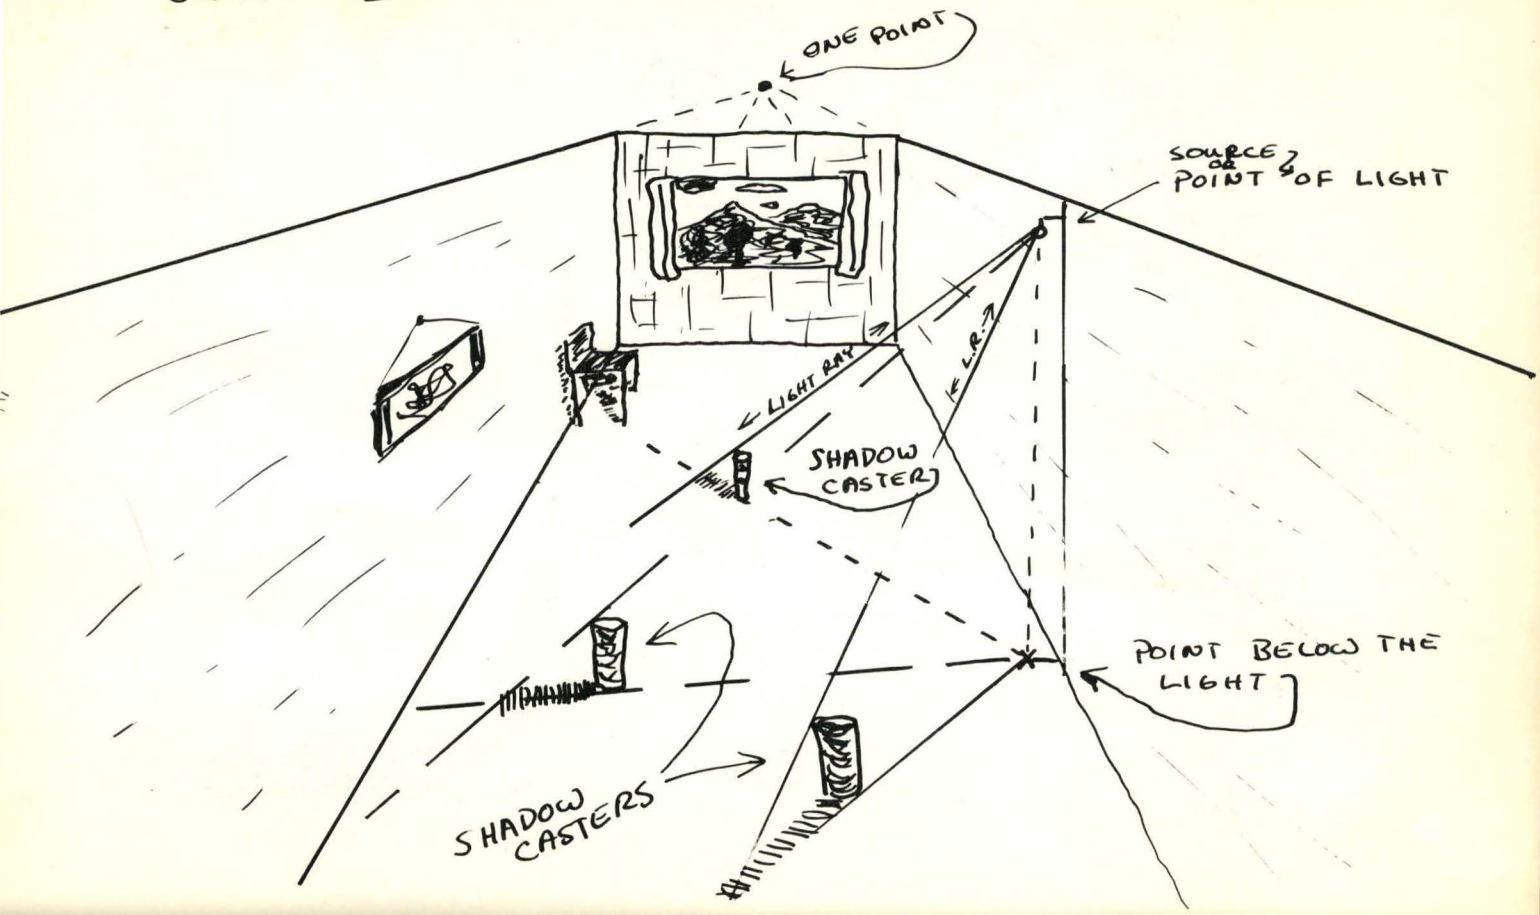 ONE POINT
SOURCE
OR
POINT OF LIGHT
LIGHT RAY
L.R.
SHADOW
CASTER
POINT BELOW THE
LIGHT
SHADOW
CASTERS